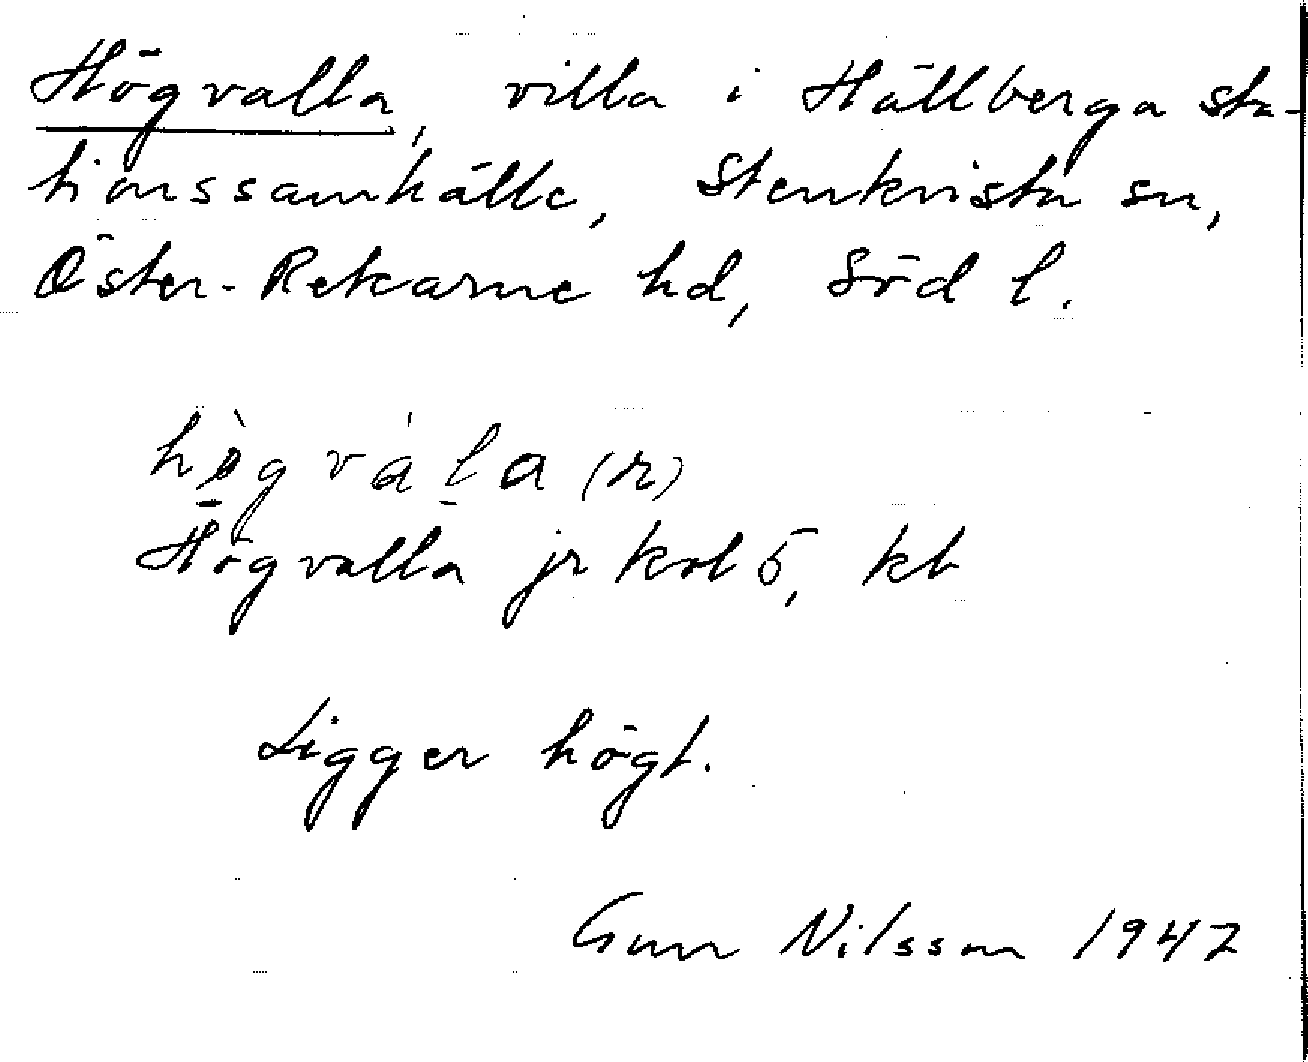 Högvalla, villa i Hällberga sta-
tionssamhälle, Stenkvista sn,
Öster-Rekarne hd, Söd l.
hø̀gvàla (r)
Högvalla jr kol 5, kb
Ligger högt.
Gun Nilsson 1947